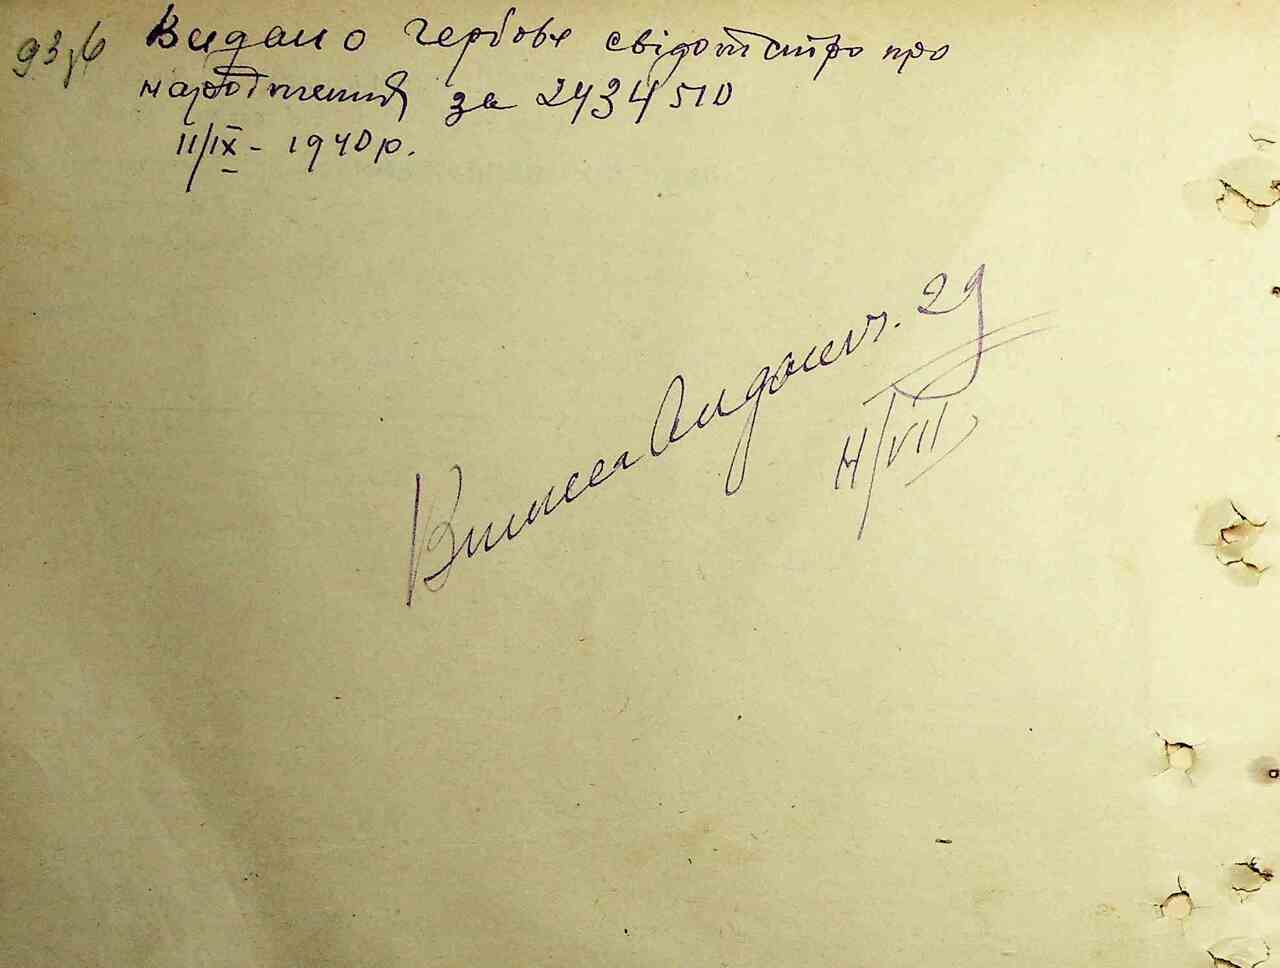 93зв Видано гербове свідотство про
народження за 2434510
11/IX - 1940 р.
Виписка видана. 29
4/VII